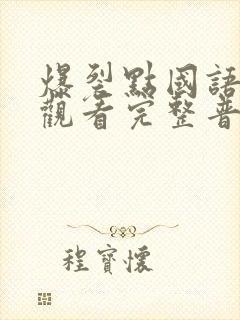 爆裂點國語
觀看完整普
程寶懷